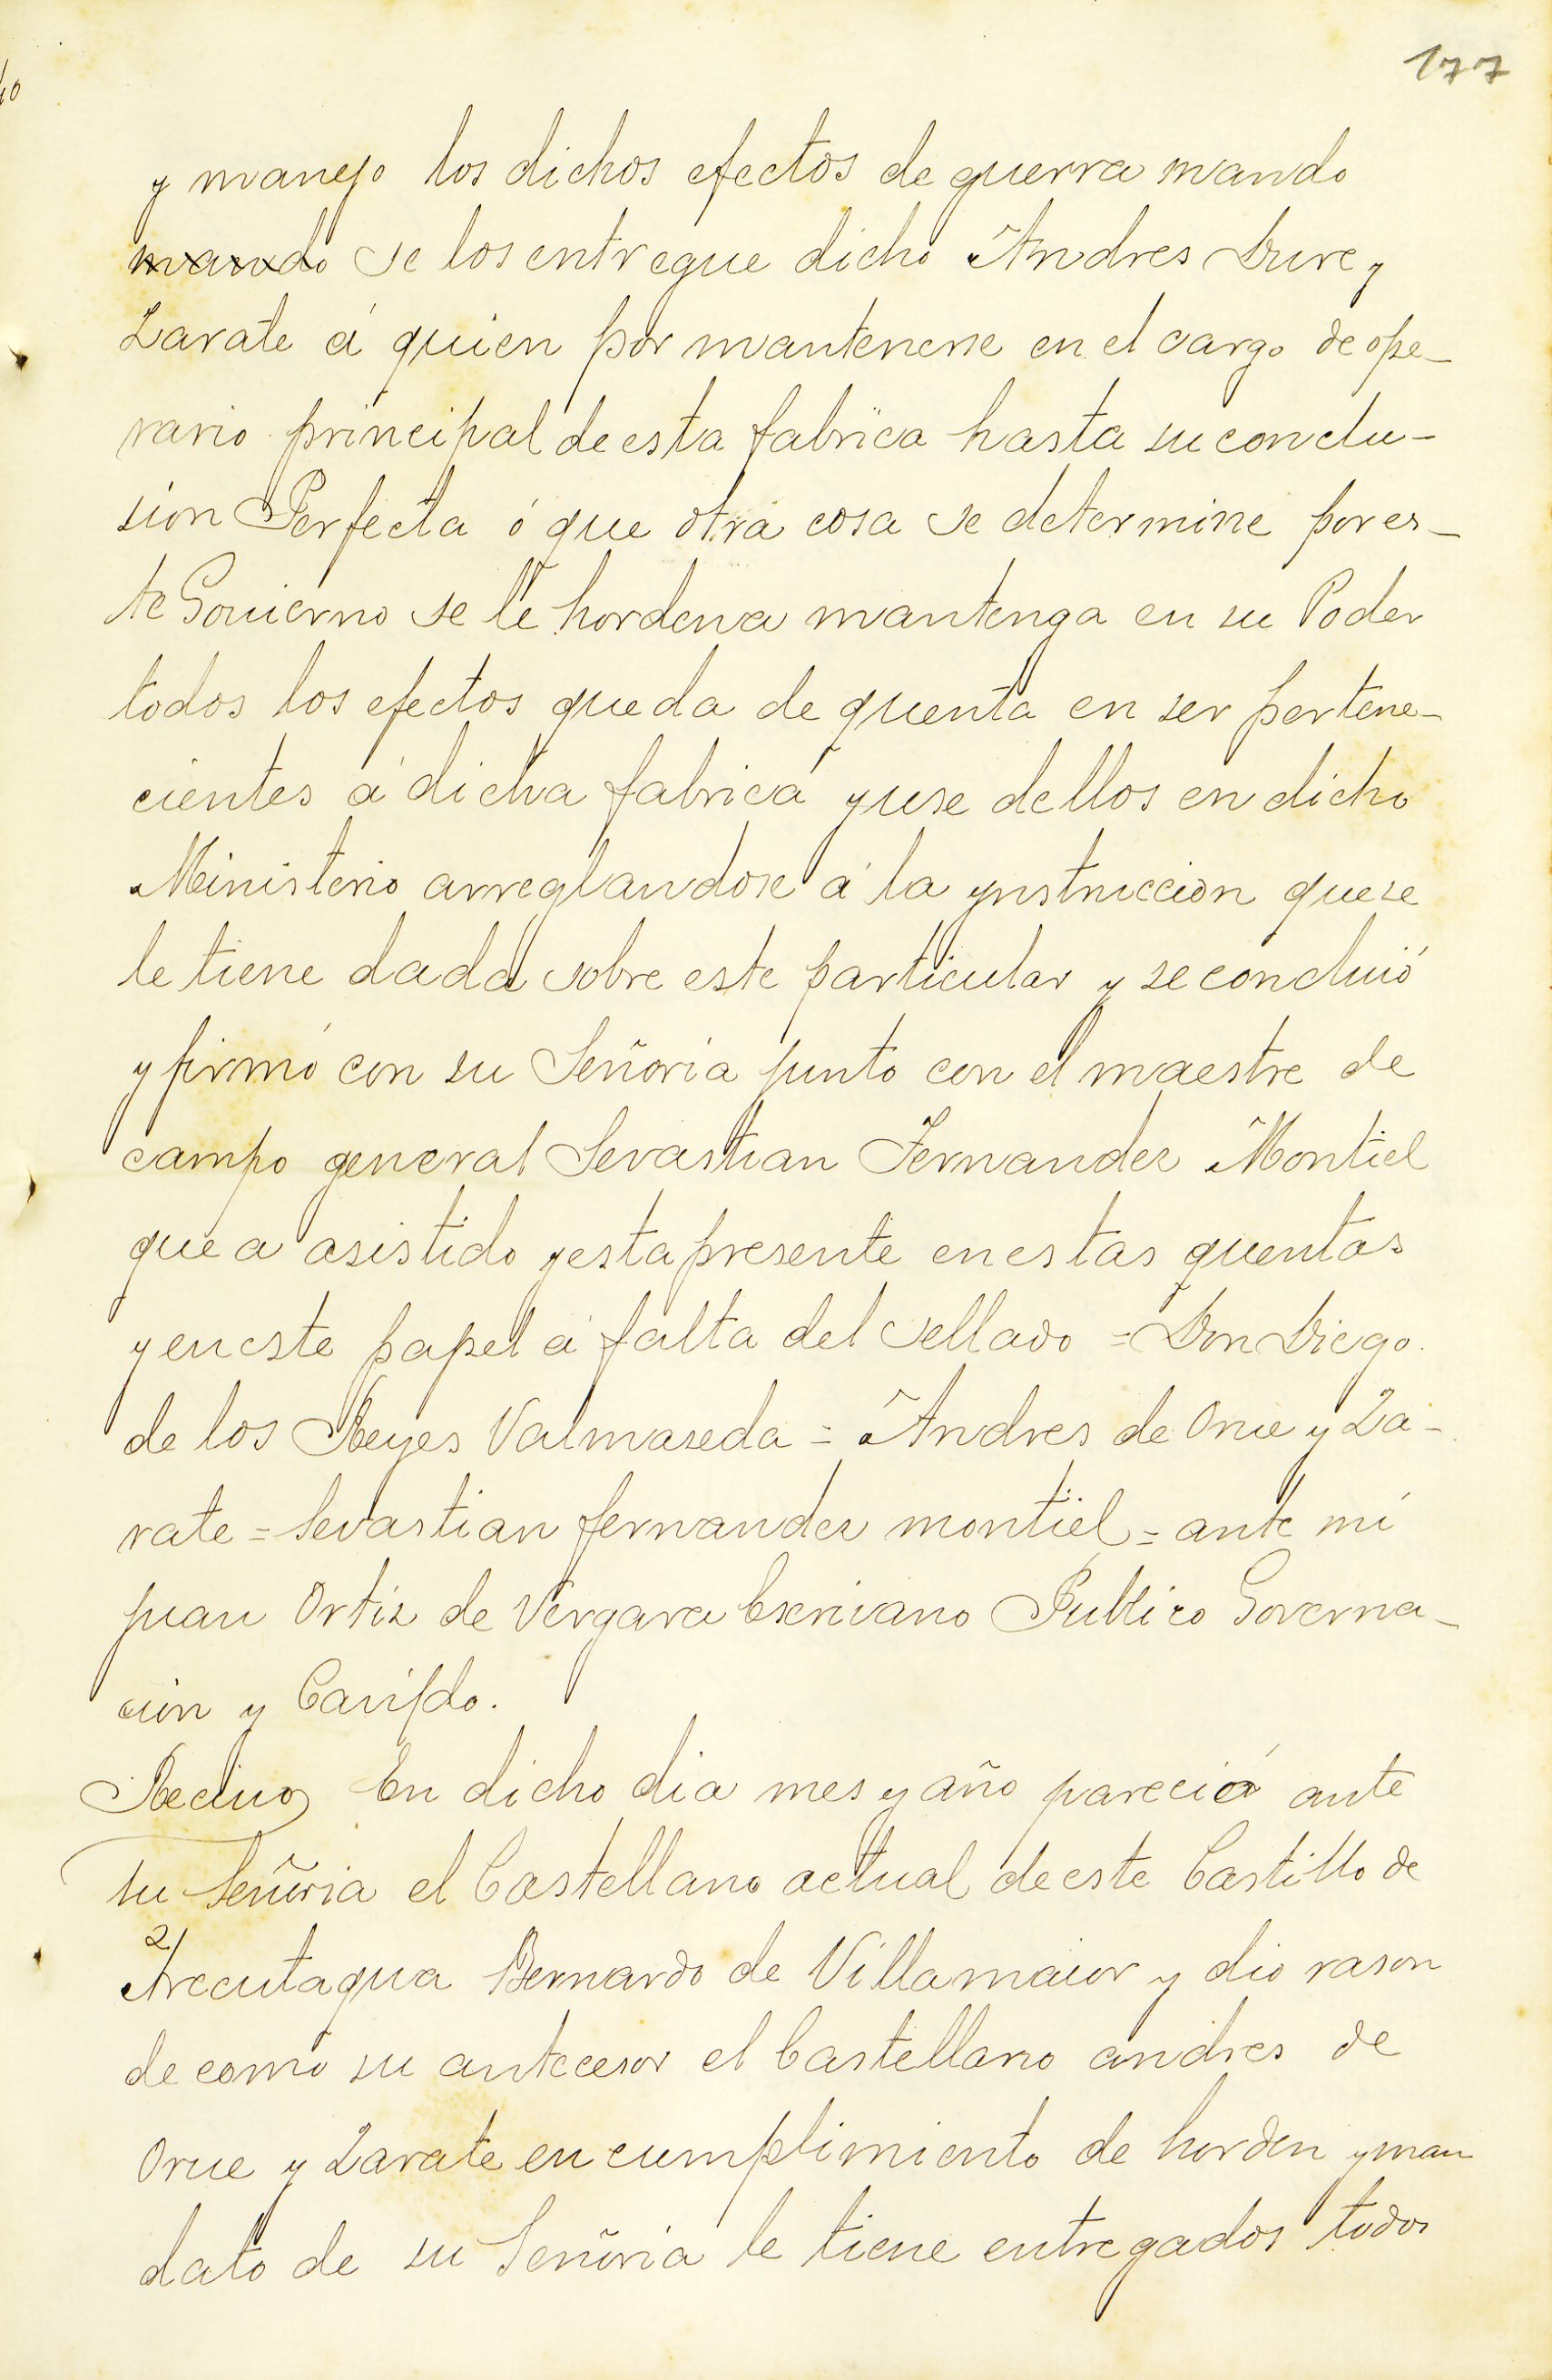 177
y manejo los dichos efectos de guerra mando
mando se los entregue dicho Andres Dure y
Zarate á quien por mantenerse en el cargo de ope-
rario principal de esta fabrica hasta su conclu-
sion Perfecta ó que otra cosa se determine por es-
te Gouierno se le hordena mantenga en su Poder
todos los efectos que da de quenta en ser pertene-
cientes á dicha fabrica y use dellos en dicho
Ministerio arreglandose á la ynstruccion que se
le tiene dada sobre este particular y se concluió
y firmó con su Señoria junto con el maestre de
campo general Sevastian Fernandez Montiel
que a asistido y esta presente en estas quentas
y en este papel á falta del sellado = Don Diego
de los Reyes Valmaseda = Andres de Orue y Za-
rate = Sevastian fernandez montiel = ante mi
juan Ortiz de Vergara Escriuano Publico Governa-
cion y Cavildo.
Reciuo En dicho dia mes y año pareció ante
su Señoria el Castellano actual de este Castillo de
Arecutagua Bernardo de Villamaior y dio rason
de como su antecesor el Castellano andres de
Orue y Zarate en cumplimiento de horden y man
dato de su Señoria le tiene entregados todos